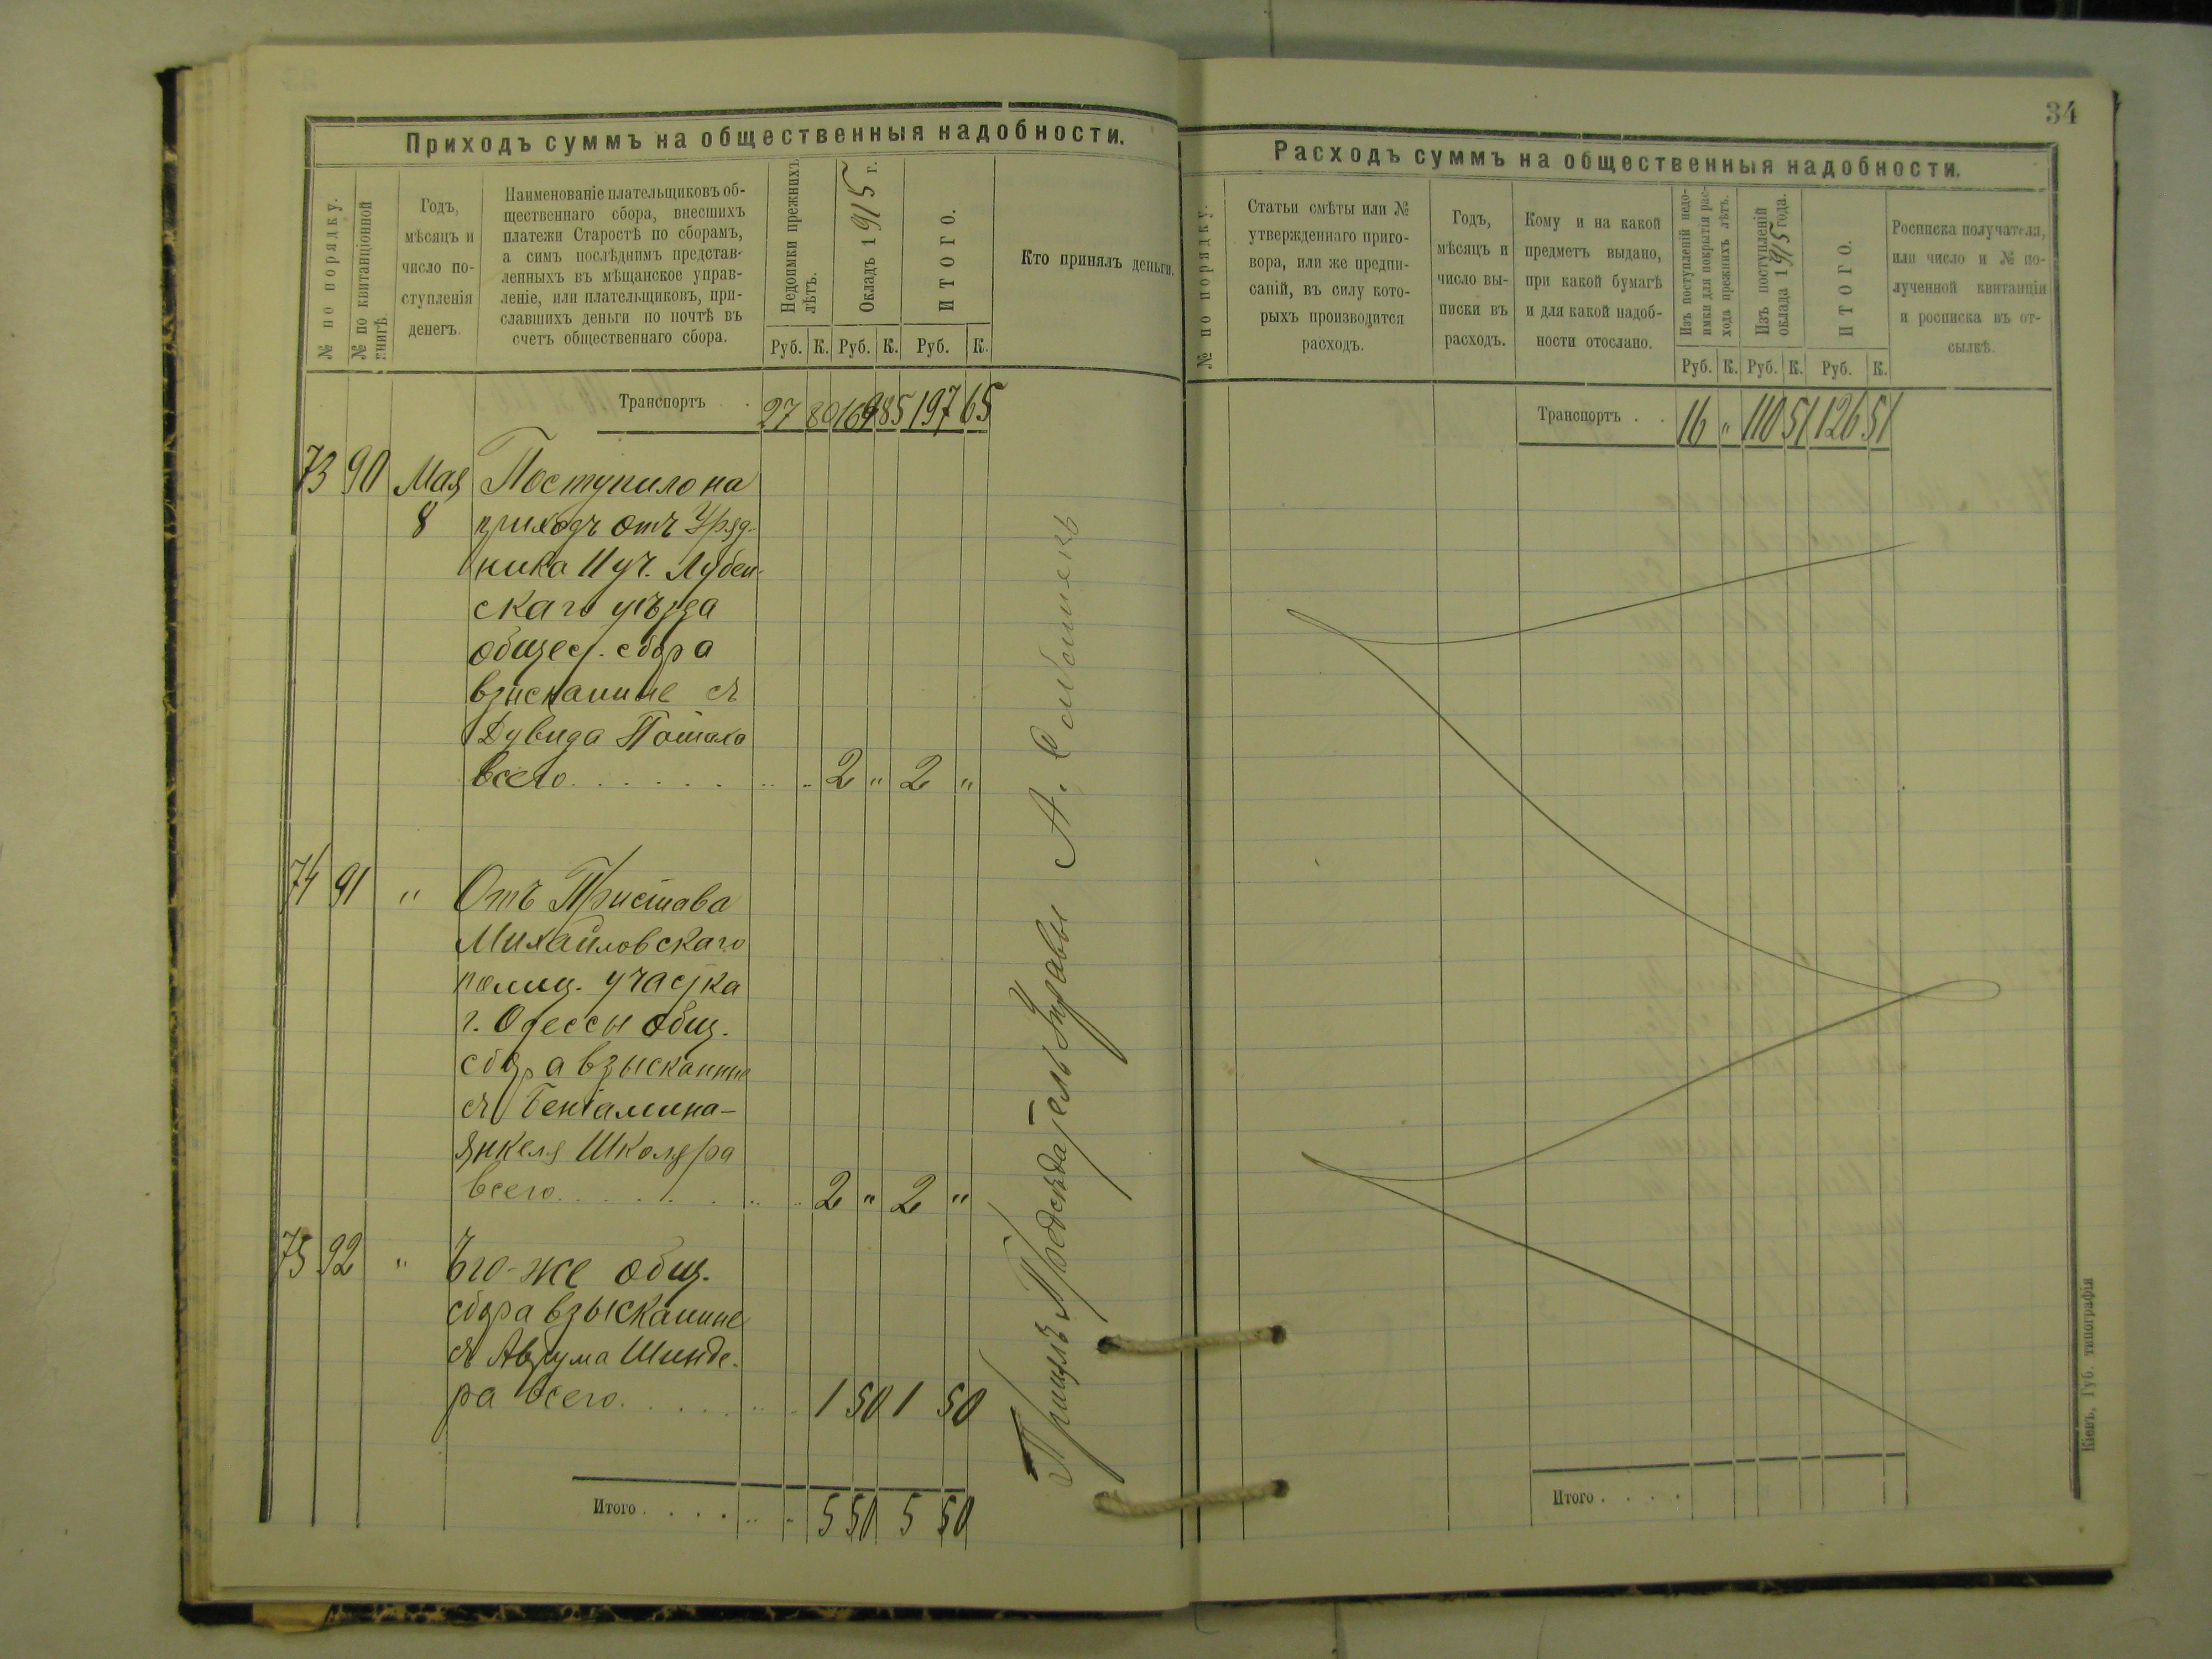 Приходъ суммъ на общественныя надобности.
№ по порядку.
№ по квитанціонной книгѣ.
Годъ,
мѣсяцъ и
число по-
ступленія
денегъ.
Наименованіе плательщиковъ об-
щественнаго сбора, внесшихъ
платежи Старостѣ по сборамъ,
а симъ послѣднимъ представ-
ленныхъ въ мѣщанское управ-
леніе, или плательщиковъ, при-
славшихъ деньги по почтѣ въ
счетъ общественнаго сбора.
Недоимки прежнихъ
лѣтъ.
Окладъ 1915 г.
ИТОГО.
Кто принялъ деньги.
Руб. К. Руб. К. Руб. К.
Транспортъ . 27 80 169 85 197 65
73 90 Мая Поступило на
8 приходъ отъ Уряд-
ника II уч. Лубен-
скаго уѣзда
общест. сбора
взысканные съ
Дувида
всего . . . . . . . . . 2 " 2 "
74 91 " Отъ Пристава
Михайловскаго
полиц. участка
г. Одессы общ.
сбора взысканные
съ Беніамина-
Янкеля Школяра
всего . . . . . . . . 2 " 2 "
75 92 " Его-же общ.
сбора взысканные
съ Аврума Шинде-
ра всего . . . . . . . 1 50 1 50
Итого . . . . . . . 5 50 5 50
Принялъ Предсѣдатель Управы А.
34
Расходъ суммъ на общественныя надобности.
№ по порядку.
Статьи смѣты или №
утвержденнаго приго-
вора, или же предпи-
саній, въ силу кото-
рыхъ производится
расходъ.
Годъ,
мѣсяцъ и
число вы-
писки въ
расходъ.
Кому и на какой
предметъ выдано,
при какой бумагѣ
и для какой надоб-
ности отослано.
Изъ поступленій недо-
имки для покрытія рас-
хода прежнихъ лѣтъ.
Изъ поступленій
оклада 1915 года.
ИТОГО.
Росписка получателя,
или число и № по-
лученной квитанціи
и росписка въ от-
сылкѣ.
Руб. К. Руб. К. Руб. К.
Транспортъ . . 16 " 110 51 126 51
Итого . . . .
Кіевъ, Губ. типографія